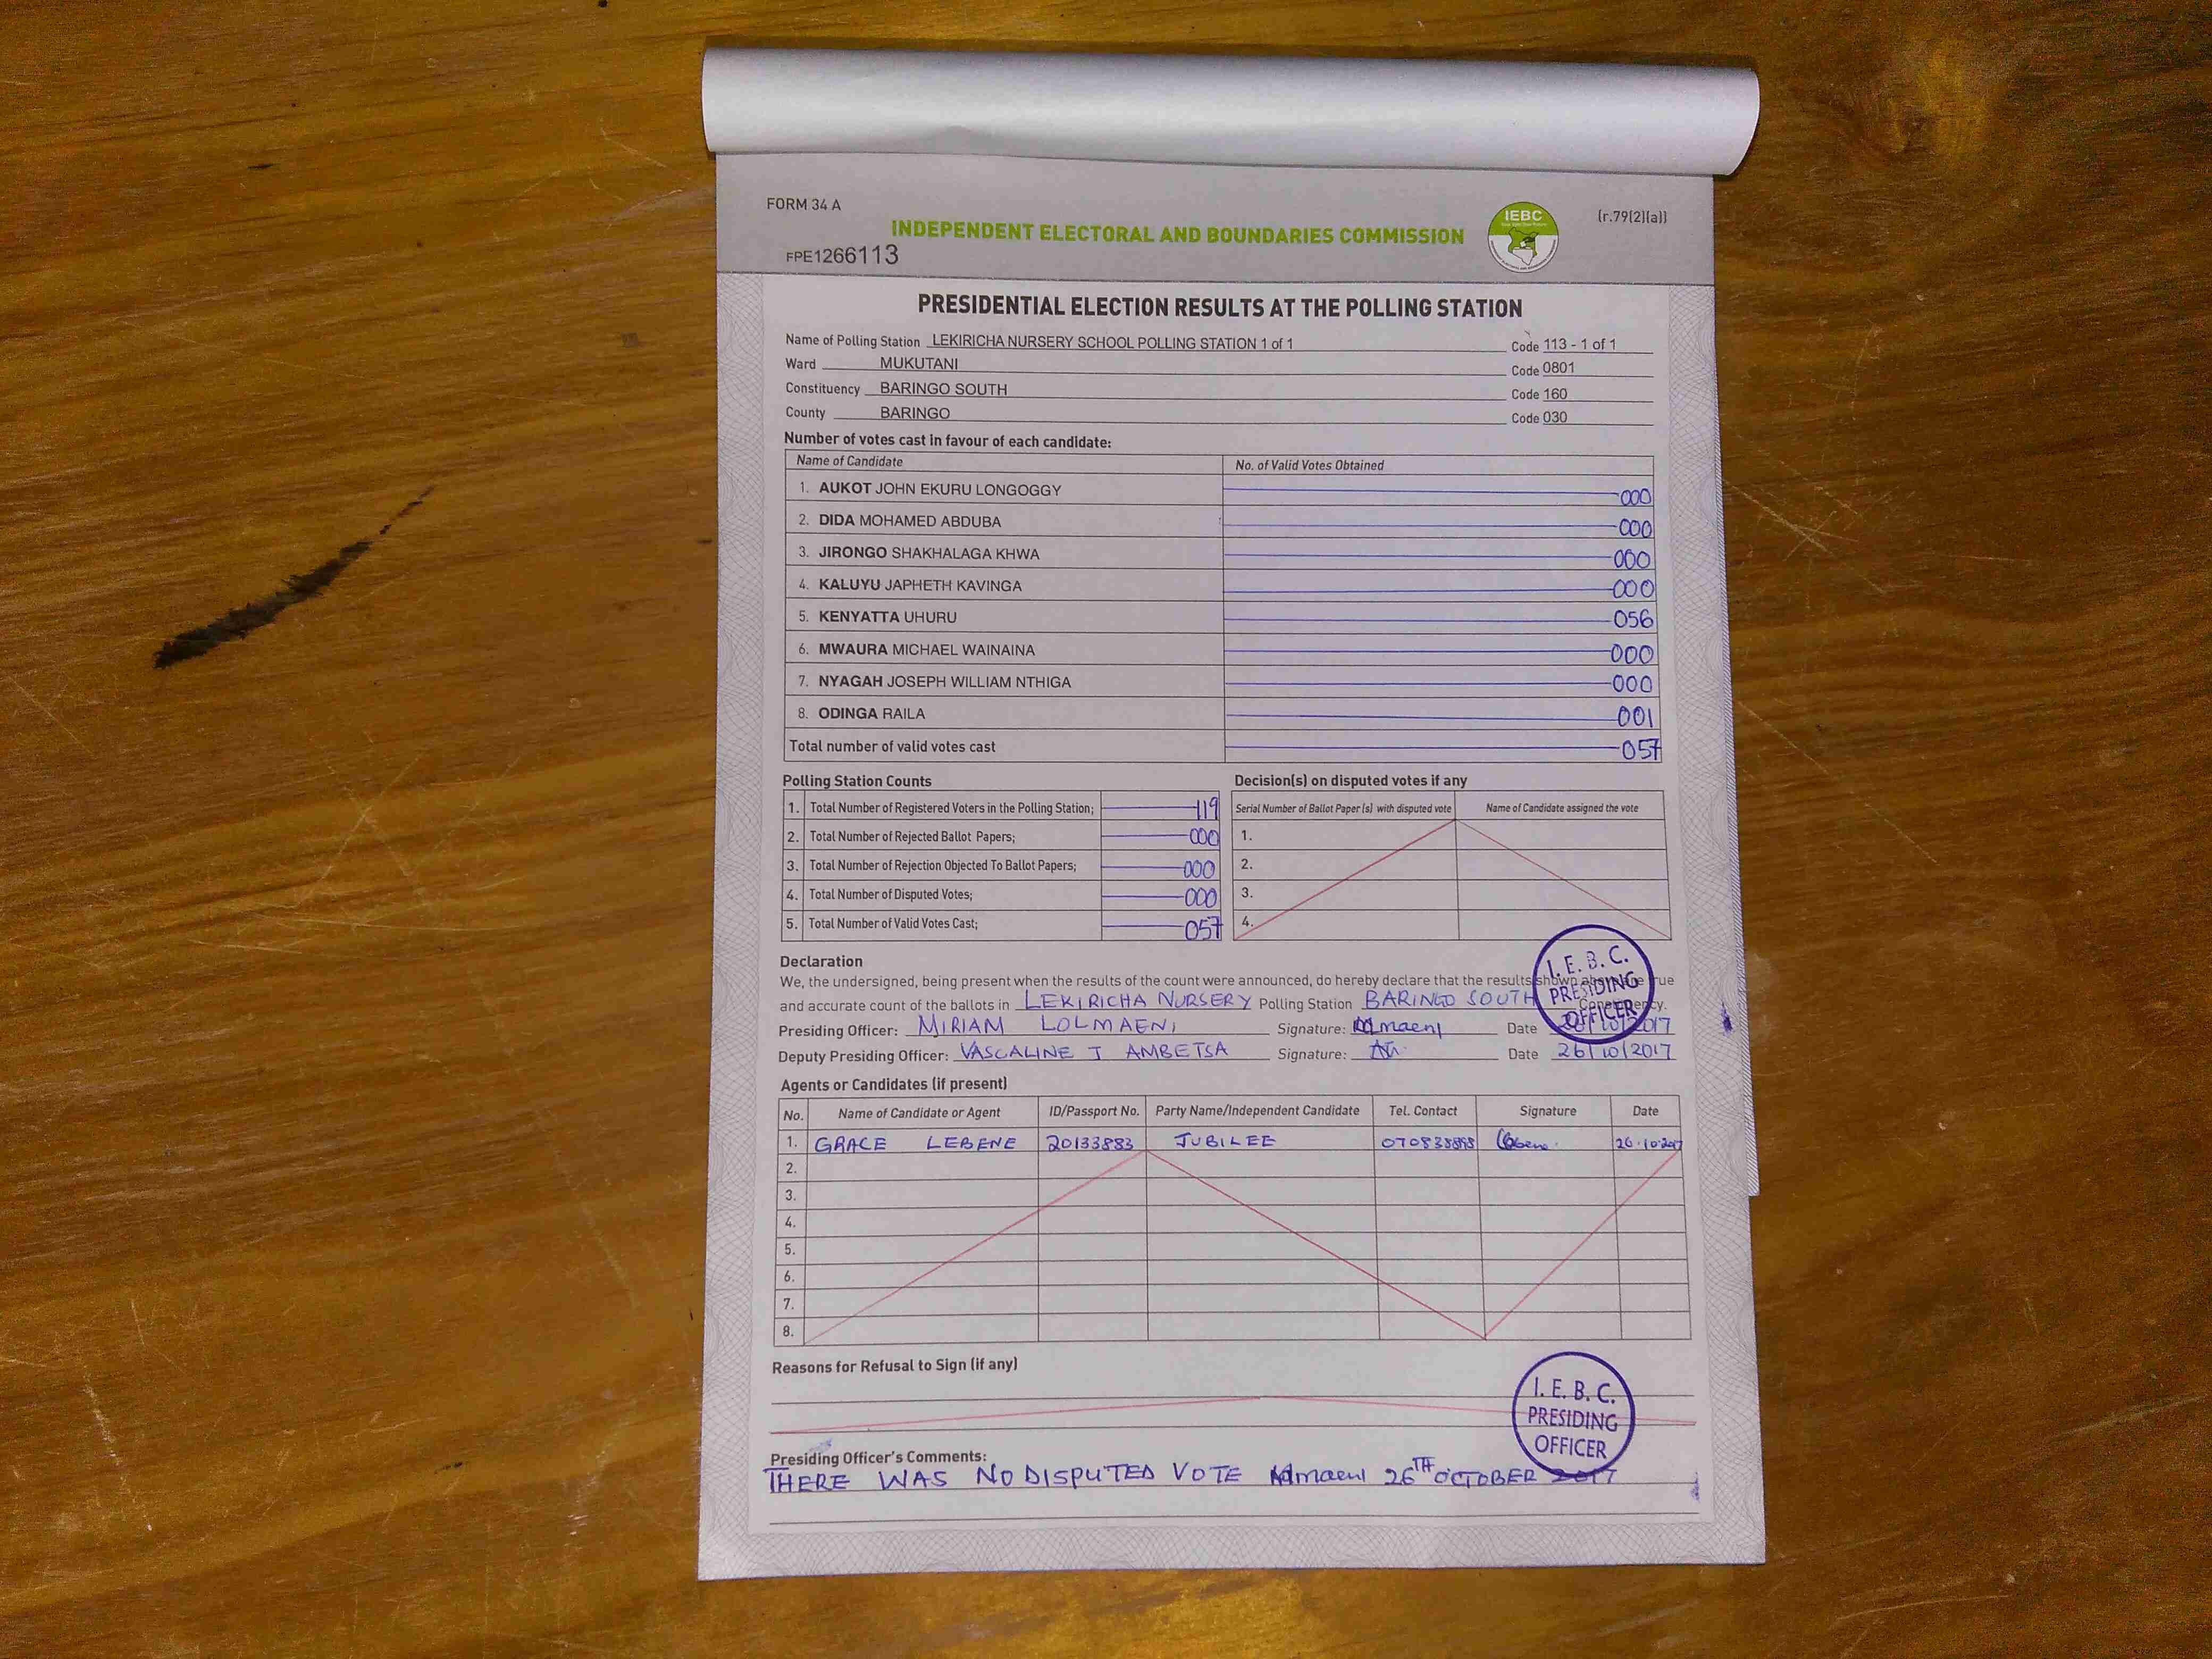 FORM 34 A
INDEPENDENT ELECTORAL AND BOUNDARIES COMMISSION
IEBC
(r.79(2)(a))
FPE1266113
PRESIDENTIAL ELECTION RESULTS AT THE POLLING STATION
Name of Polling Station LEKIRICHA NURSERY SCHOOL POLLING STATION 1 of 1 Code 113 - 1 of 1
Ward MUKUTANI Code 0801
Constituency BARINGO SOUTH Code 160
County BARINGO Code 030
Number of votes cast in favour of each candidate:
Name of Candidate No. of Valid Votes Obtained
1. AUKOT JOHN EKURU LONGOGGY 000
2. DIDA MOHAMED ABDUBA 000
3. JIRONGO SHAKHALAGA KHWA 000
4. KALUYU JAPHETH KAVINGA 000
5. KENYATTA UHURU 056
6. MWAURA MICHAEL WAINAINA 000
7. NYAGAH JOSEPH WILLIAM NTHIGA 000
8. ODINGA RAILA 001
Total number of valid votes cast 057
Polling Station Counts
1. Total Number of Registered Voters in the Polling Station; 119
2. Total Number of Rejected Ballot Papers; 000
3. Total Number of Rejection Objected To Ballot Papers; 000
4. Total Number of Disputed Votes; 000
5. Total Number of Valid Votes Cast; 057
Decision(s) on disputed votes if any
Serial Number of Ballot Paper(s) with disputed vote Name of Candidate assigned the vote
1.
2.
3.
4.
Declaration
We, the undersigned, being present when the results of the count were announced, do hereby declare that the results shown
and accurate count of the ballots in LEKIRICHA NURSERY Polling Station BARINGO SOUTH
I. E. B. C.
PRESIDING
OFFICER
Presiding Officer: MIRIAM LOLMAENI Signature: Date
Deputy Presiding Officer: VASCALINE J AMBETSA Signature: Date 26/10/2017
Agents or Candidates (if present)
No. Name of Candidate or Agent ID/Passport No. Party Name/Independent Candidate Tel. Contact Signature Date
1. GRACE LEBENE 20133883 JUBILEE 26.10.2017
2.
3.
4.
5.
6.
7.
8.
Reasons for Refusal to Sign (if any)
I. E. B. C.
PRESIDING
OFFICER
Presiding Officer's Comments:
THERE WAS NO DISPUTED VOTE 26TH OCTOBER 2017